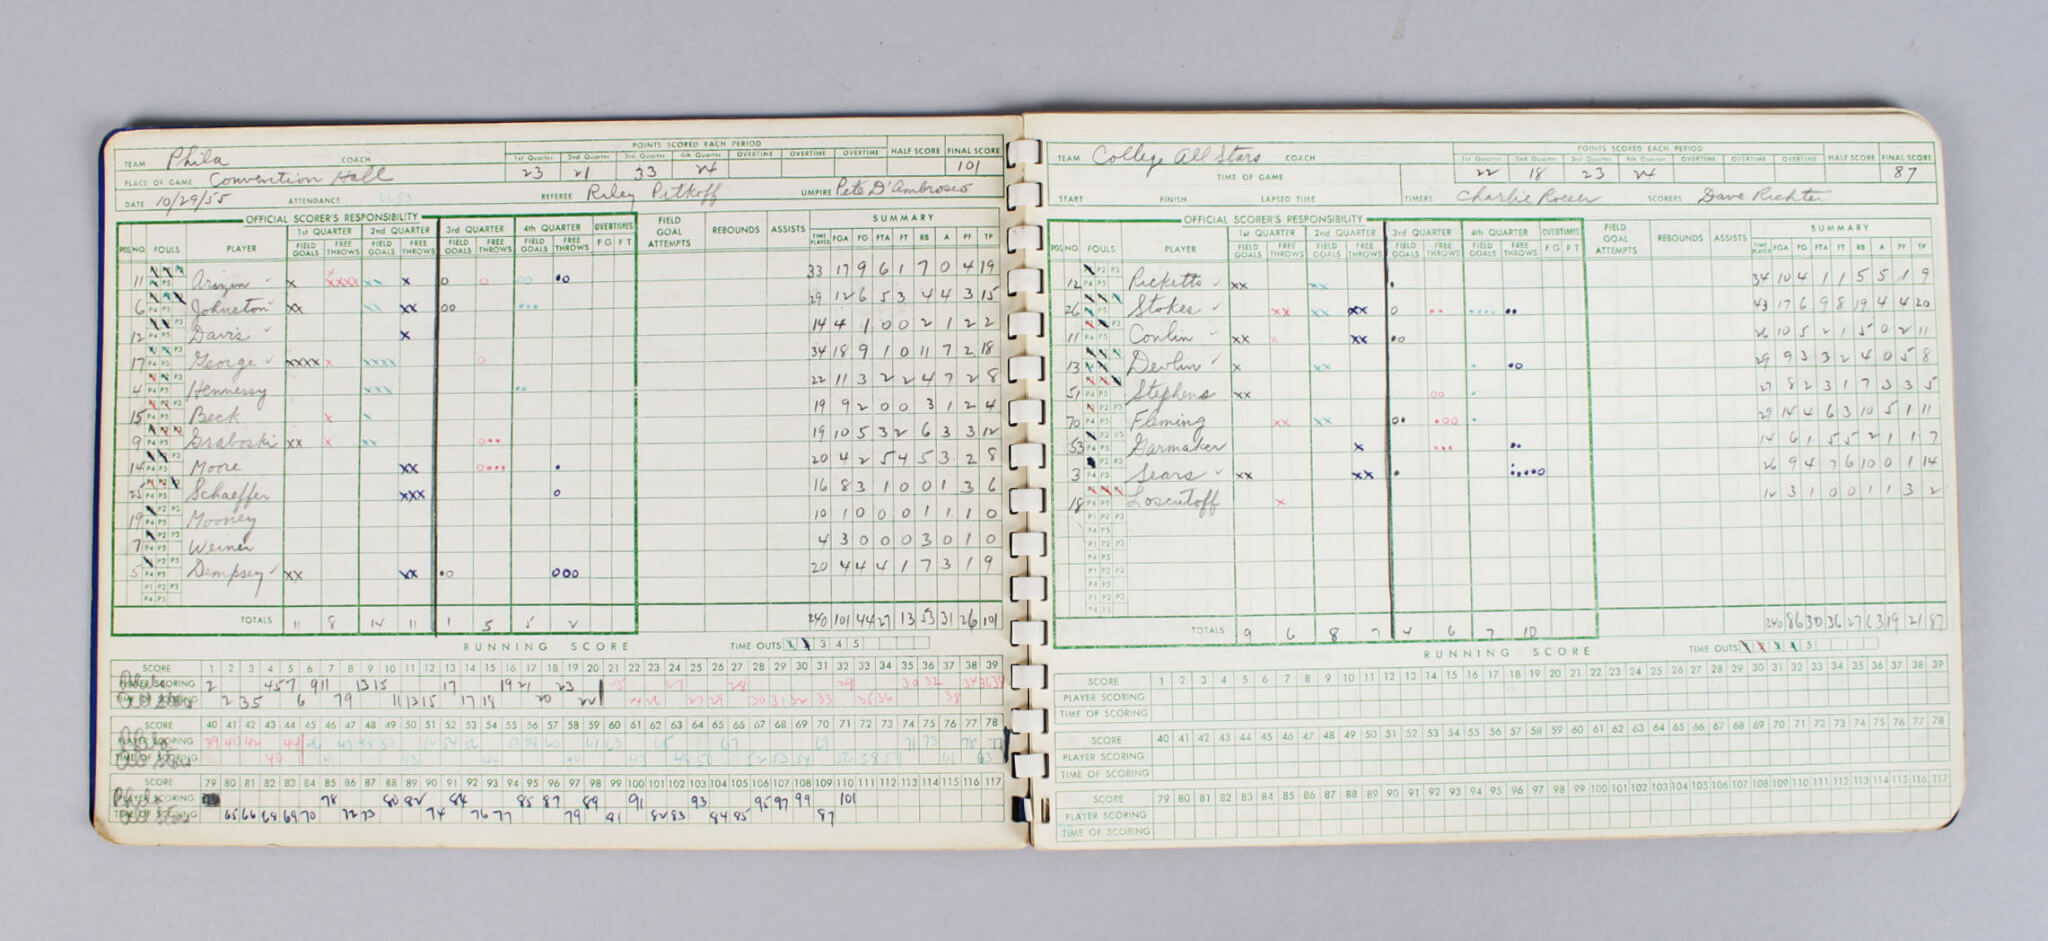 TEAM Phila COACH
POINTS SCORED EACH PERIOD
1st Quarter 2nd Quarter 3rd Quarter 4th Quarter OVERTIME OVERTIME OVERTIME HALF SCORE FINAL SCORE
23 21 33 24 101
PLACE OF GAME Convention Hall
DATE 10/29/55 ATTENDANCE REFEREE Riley Pitkoff UMPIRE Pete D'Ambrosio
OFFICIAL SCORER'S RESPONSIBILITY
1st QUARTER 2nd QUARTER 3rd QUARTER 4th QUARTER OVERTIMES FIELD GOAL ATTEMPTS REBOUNDS ASSISTS SUMMARY
POS. NO. FOULS PLAYER FIELD GOALS FREE THROWS FIELD GOALS FREE THROWS FIELD GOALS FREE THROWS FIELD GOALS FREE THROWS F G F T TIME PLAYED FGA FG FTA FT RB A PF TP
11 Arizin 33 17 9 6 1 7 0 4 19
6 Johnston 29 12 6 5 3 4 4 3 15
12 Davis 14 4 1 0 0 2 1 2 2
17 George 34 18 9 1 0 11 7 2 18
4 Hennessy 22 11 3 2 2 4 7 2 8
15 Beck 19 9 2 0 0 3 1 2 4
9 Graboski 19 10 5 3 2 6 3 3 12
14 Moore 20 4 2 5 4 5 3 2 8
25 Schaeffer 16 8 3 1 0 0 1 3 6
19 Mooney 10 1 0 0 0 1 1 1 0
7 Weiner 4 3 0 0 0 3 0 1 0
5 Dempsey 20 4 4 4 1 7 3 1 9
TOTALS 11 8 14 11 1 5 5 2 240 101 44 27 13 53 31 26 101
RUNNING SCORE TIME OUTS 3 4 5
SCORE 1 2 3 4 5 6 7 8 9 10 11 12 13 14 15 16 17 18 19 20 21 22 23 24 25 26 27 28 29 30 31 32 33 34 35 36 37 38 39
PLAYER SCORING 2 4 5 7 9 11 13 15 17 19 21 23
TIME OF SCORING 2 3 5 6 7 9 11 12 15 17 18 20 22
SCORE 40 41 42 43 44 45 46 47 48 49 50 51 52 53 54 55 56 57 58 59 60 61 62 63 64 65 66 67 68 69 70 71 72 73 74 75 76 77 78
PLAYER SCORING
TIME OF SCORING
SCORE 79 80 81 82 83 84 85 86 87 88 89 90 91 92 93 94 95 96 97 98 99 100 101 102 103 104 105 106 107 108 109 110 111 112 113 114 115 116 117
Phila PLAYER SCORING 78 80 82 84 85 87 89 91 93 95 97 99 101
TIME OF SCORING 65 66 68 69 70 72 73 74 76 77 79 81 82 83 84 85 87
TEAM College All Stars COACH
POINTS SCORED EACH PERIOD
1st Quarter 2nd Quarter 3rd Quarter 4th Quarter OVERTIME OVERTIME OVERTIME HALF SCORE FINAL SCORE
22 18 23 24 87
TIME OF GAME
START FINISH LAPSED TIME TIMERS Charlie Roeser SCORERS Dave Richter
OFFICIAL SCORER'S RESPONSIBILITY
1st QUARTER 2nd QUARTER 3rd QUARTER 4th QUARTER OVERTIMES FIELD GOAL ATTEMPTS REBOUNDS ASSISTS SUMMARY
POS. NO. FOULS PLAYER FIELD GOALS FREE THROWS FIELD GOALS FREE THROWS FIELD GOALS FREE THROWS FIELD GOALS FREE THROWS F G F T TIME PLAYED FGA FG FTA FT RB A PF TP
12 Ricketts 34 10 4 1 1 5 5 1 9
26 Stokes 43 17 6 9 8 19 4 4 20
11 Conlin 26 10 5 2 1 5 0 2 11
13 Devlin 29 9 3 3 2 4 0 5 8
51 Stephens 27 8 2 3 1 7 3 3 5
70 Fleming 29 14 4 6 3 10 5 1 11
53 Garmaker 14 6 1 5 5 2 1 1 7
3 Sears 26 9 4 7 6 10 0 1 14
18 Loscutoff 12 3 1 0 0 1 1 3 2
TOTALS 9 6 8 7 4 6 7 10 240 86 30 36 27 63 19 21 87
RUNNING SCORE TIME OUTS 5
SCORE 1 2 3 4 5 6 7 8 9 10 11 12 13 14 15 16 17 18 19 20 21 22 23 24 25 26 27 28 29 30 31 32 33 34 35 36 37 38 39
PLAYER SCORING
TIME OF SCORING
SCORE 40 41 42 43 44 45 46 47 48 49 50 51 52 53 54 55 56 57 58 59 60 61 62 63 64 65 66 67 68 69 70 71 72 73 74 75 76 77 78
PLAYER SCORING
TIME OF SCORING
SCORE 79 80 81 82 83 84 85 86 87 88 89 90 91 92 93 94 95 96 97 98 99 100 101 102 103 104 105 106 107 108 109 110 111 112 113 114 115 116 117
PLAYER SCORING
TIME OF SCORING